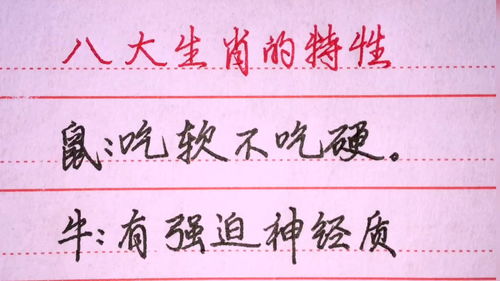 八大生肖的特性
鼠:吃软不吃硬。
牛:有强迫神经质